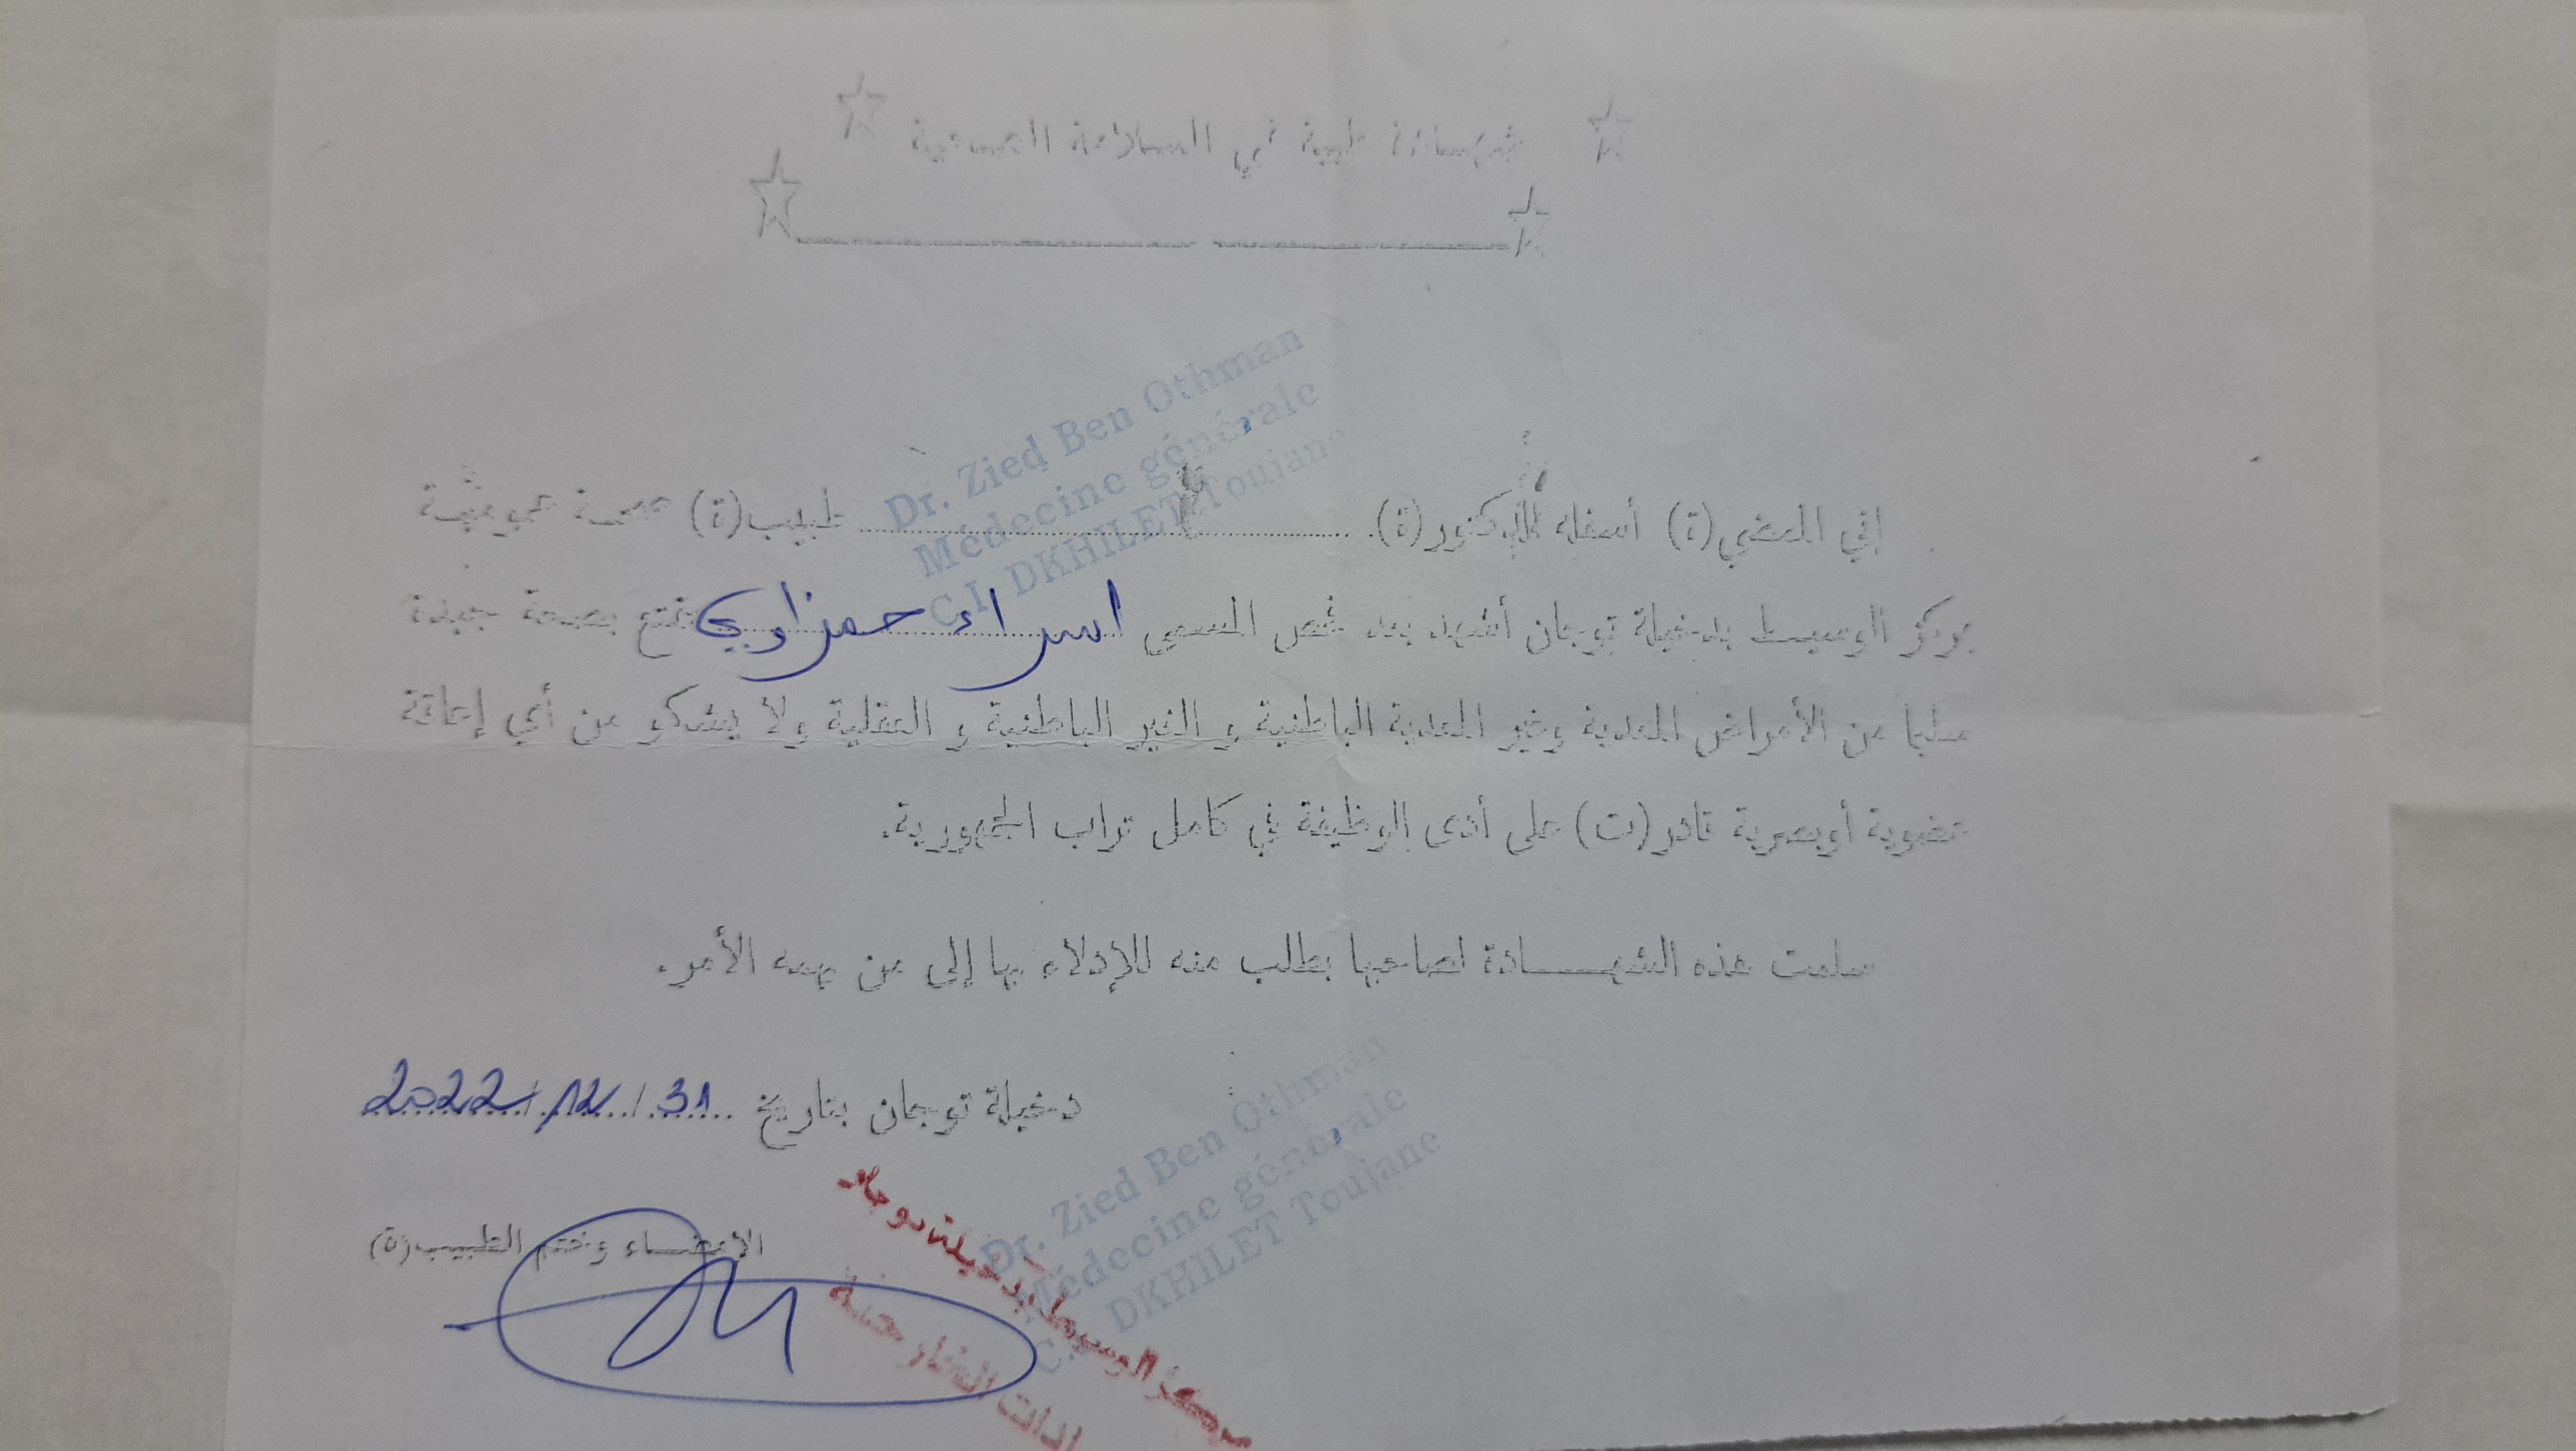 شهادة طبية في السلامة الصحية
Dr. Zied Ben Othman
Médecine générale
C.I. DKHILET Toujane
إني الممضي(ة) أسفله الدكتور(ة). طبيب(ة) صحة عمومية
بمركز الوسيط بدخيلة توجان أشهد بعد فحص المسمى اسراء حمزاوي يتمتع بصحة جيدة
سليما من الأمراض المعدية وغير المعدية الباطنية و الغير الباطنية و العقلية ولا يشكو من أي إعاقة
عضوية أوبصرية قادر(ت) على أدى الوظيفة في كامل تراب الجمهورية.
سلمت هذه الشهـــــادة لصاحبها بطلب منه للإدلاء بها إلى من يهمه الأمر.
دخيلة توجان بتاريخ 31/12/2022
الإمضــاء وختم الطبيب(ة)
Dr. Zied Ben Othman
Médecine générale
C.I. DKHILET Toujane
مركز الوسيط بدخيلة توجان